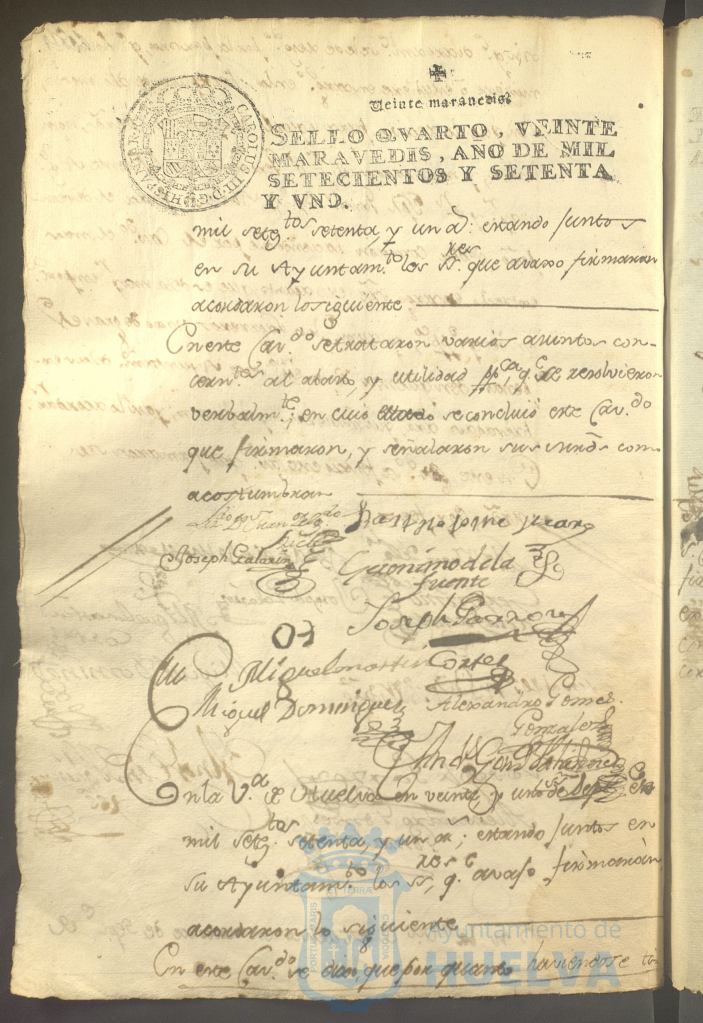 Veinte maravedis.
SELLO QVARTO, VEINTE
MARAVEDIS, AÑO DE MIL
SETECIENTOS Y SETENTA
Y VNO.
CAROLUS III. D. G. HISPANIAR. R.
mil setz.tos setenta, y un a.s: estando juntos
en su Ayuntam.to los SS.res que avaxo firmaran
acordaron lo siguiente
En este Cav.do se trataron varios asuntos con-
cern.tes al abasto, y utilidad pp.ca q.e se resolvieron
verbalm.te; en cuio se concluió este Cav.do
que firmaron, y señalaron sus mrds. como
acostumbran
Joseph Galarin
Geronimo de la
fuente
Joseph Garzon
Miguel martin Cortes
Miguel Dominguez Alexandro Gomes
Gonzales
En la V.a de Huelva en veinte, y uno de Sep.re de
mil setz.tos setenta, y un a.s; estando juntos en
su Ayuntam.to los SS.res q.e avaxo firmarán
acordaron lo siguiente
En este Cav.do se dixo que por quanto haviendose
PORTUS MARIS ET TERRÆ CUSTODIA
Ayuntamiento de
HUELVA